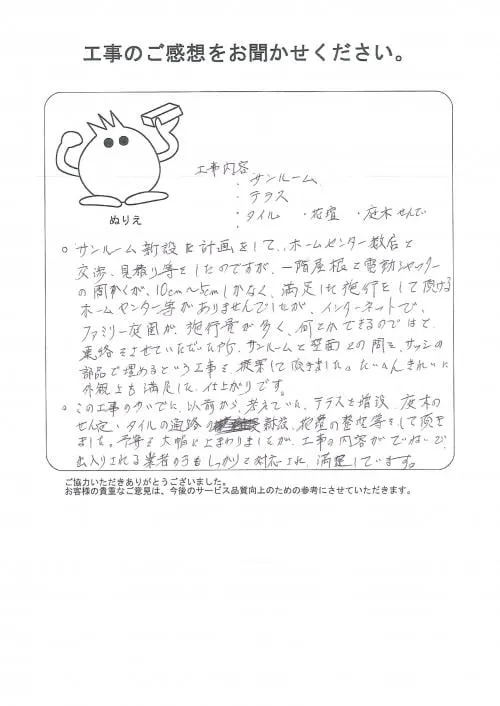 工事のご感想をお聞かせください。
ぬりえ
工事内容
・サンルーム
・テラス
・タイル ・花壇 ・庭木せんてい
○サンルーム新設を計画をして、ホームセンター数店と
交渉、見積り等をしたのですが、一階屋根と電動シャッター
の間かくが、10cm～5cmしかなく、満足した施行をして頂ける
ホームセンター等がありませんでしたが、インターネットで、
ファミリー庭園が、施行量が多く、何とかできるのではと、
連絡をさせていただいた所、サンルームと壁面との間を、サッシの
部品で埋めるという工事を提案して頂きました。たいへんきれいに
外観上も満足した仕上がりです。
○この工事のついでに、以前から考えていた、テラスを増設、庭木の
せん定、タイルの通路の新設、花壇の整地等をして頂き
ました。予算を大幅に上まわりましたが、工事の内容がていねいで、
出入りされる業者の方もしっかりと対応され、満足しています。
ご協力いただきありがとうございました。
お客様の貴重なご意見は、今後のサービス品質向上のための参考にさせていただきます。